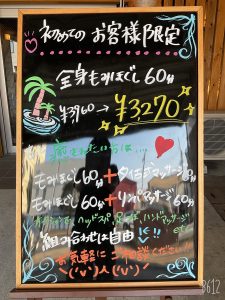 初めての お客様限定
全身もみほぐし 60分
¥3960→ ¥3270
もみほぐし60分+タイ古式マッサージ60分
もみほぐし60分+リンパマッサージ60分
ヘッドスパ 足つぼ ハンドマッサージ etc
組み合わせは自由!!
お気軽にご相談ください!!
\('v')人('v')/